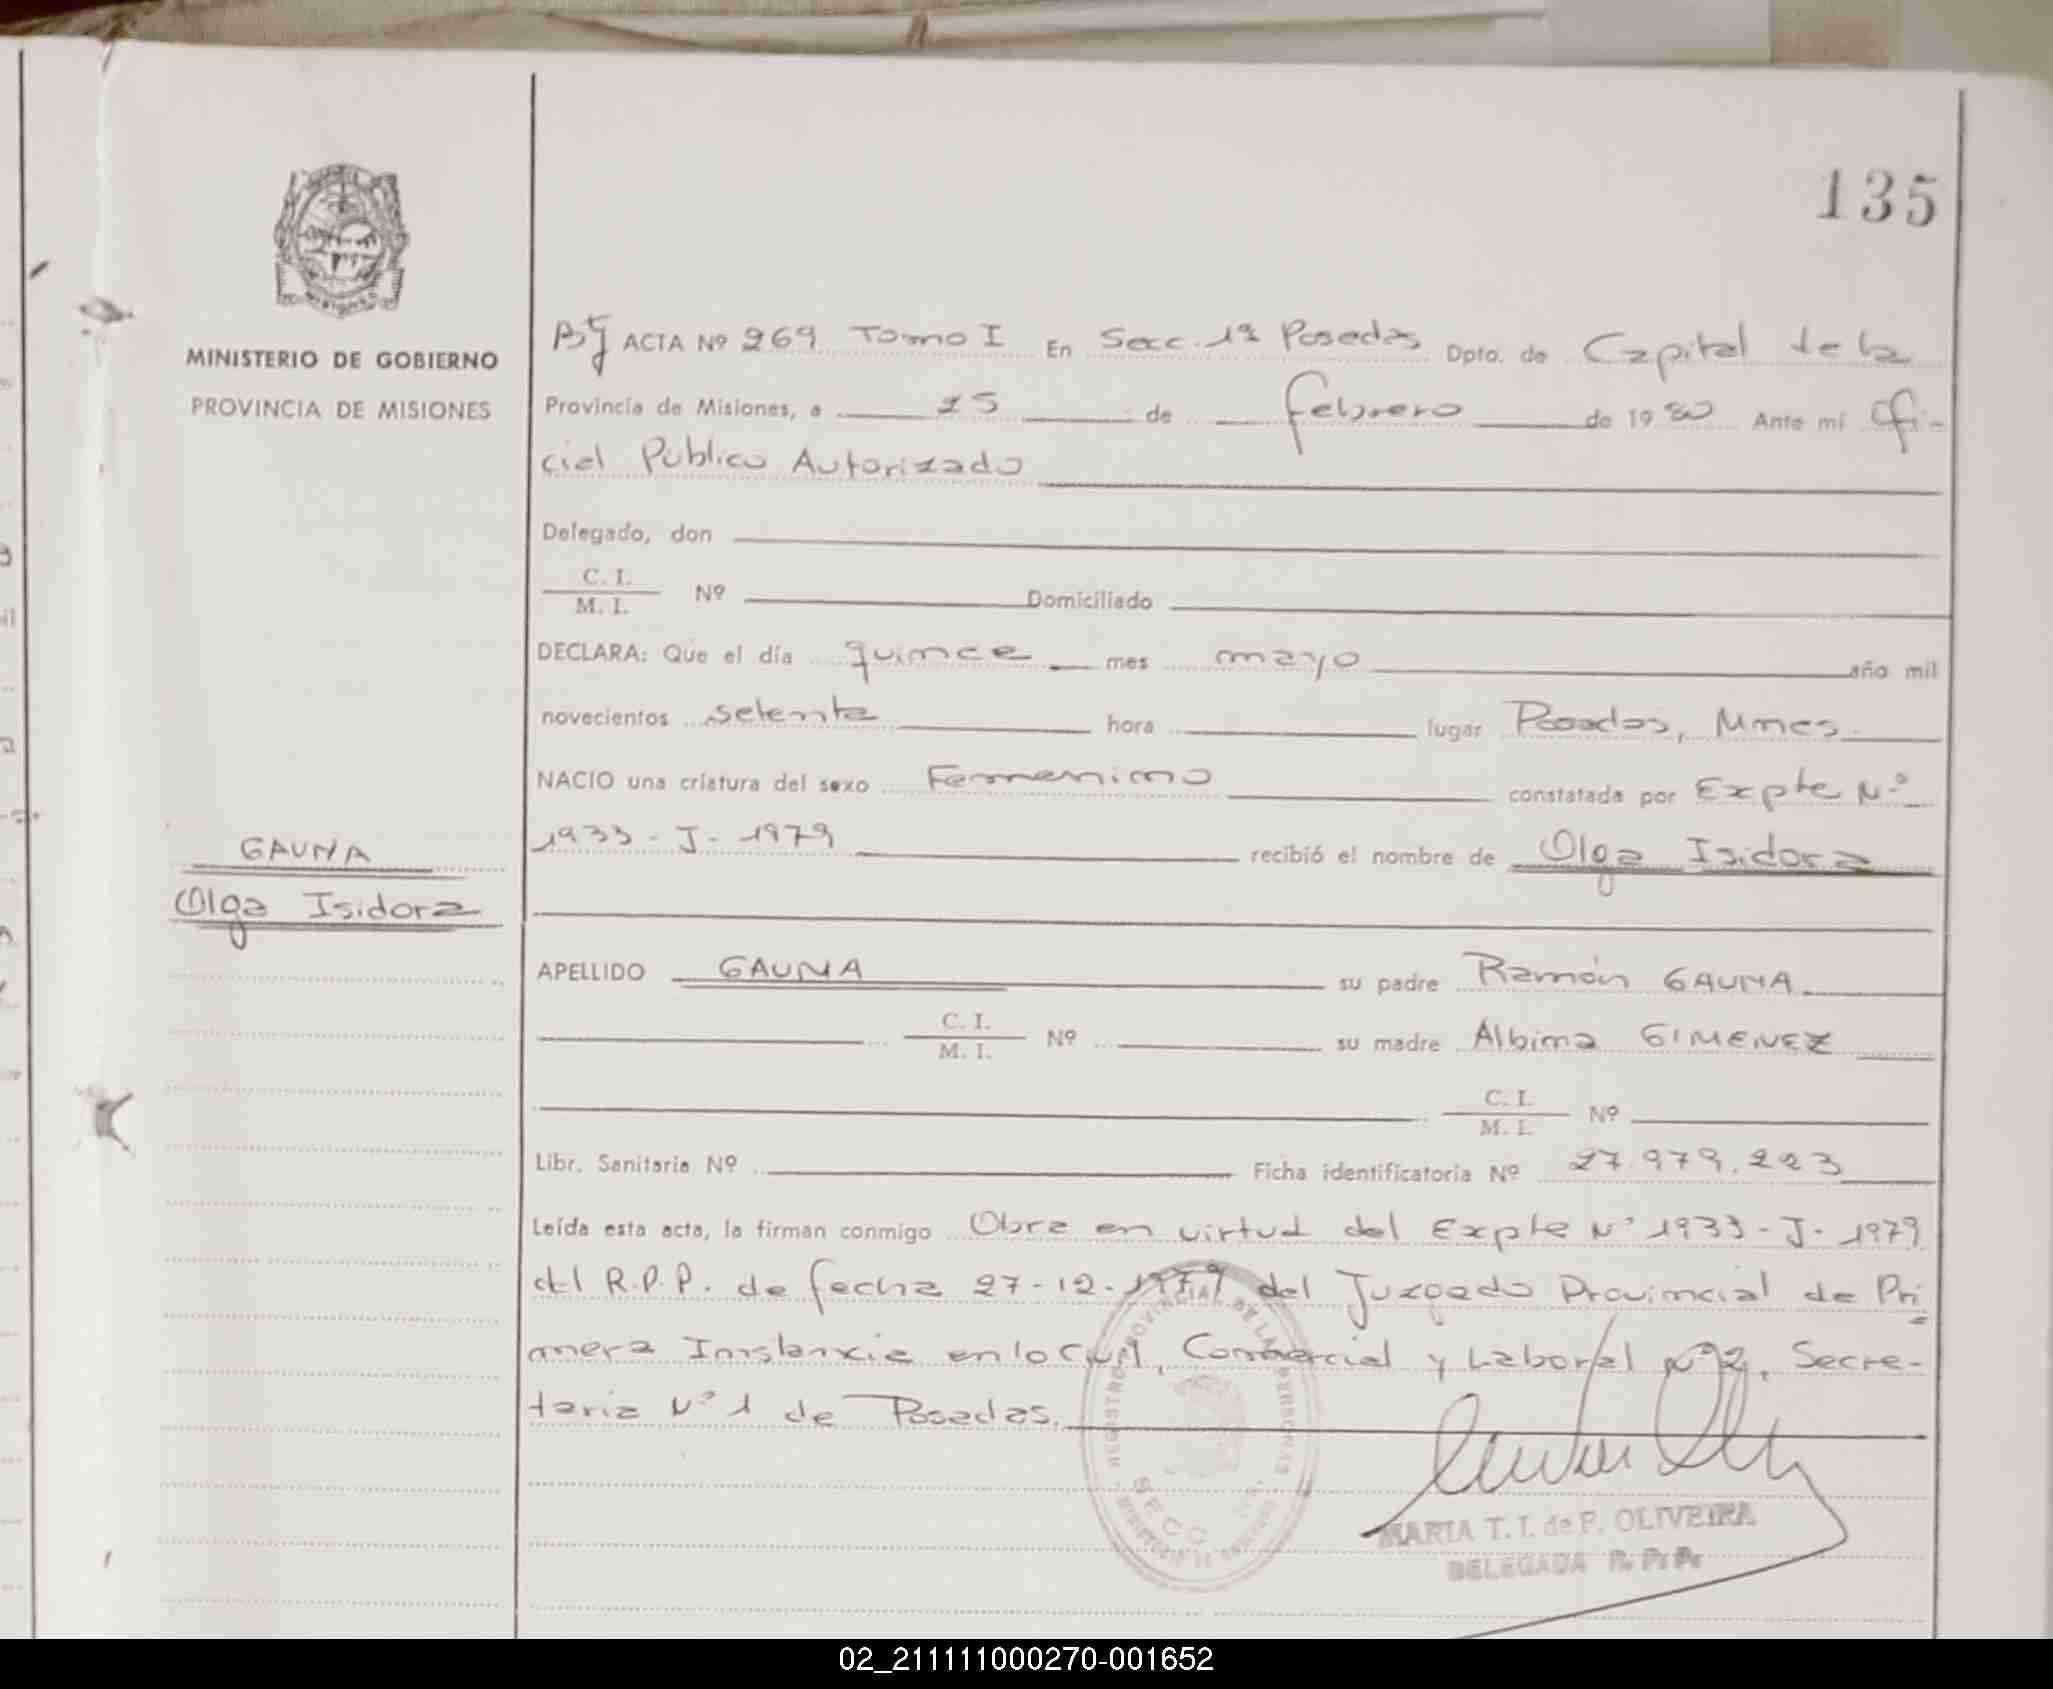 135
MINISTERIO DE GOBIERNO
PROVINCIA DE MISIONES
ACTA Nº 269 Tomo I En Secc. 1ª Posadas Dpto. de Capital de la
Provincia de Misiones, a 25 de febrero de 1980 Ante mi Ofi-
cial Público Autorizado
Delegado, don
C. I.
M. I. Nº Domiciliado
DECLARA: Que el día quince mes mayo año mil
novecientos setenta hora lugar Posadas, Mnes.
NACIO una criatura del sexo Femenino constatada por Expte Nº
1933-J-1979 recibió el nombre de Olga Isidora
GAUNA
Olga Isidora
APELLIDO GAUNA su padre Ramón GAUNA
C. I.
M. I. Nº su madre Albina GIMENEZ
C. I.
M. I. Nº
Libr. Sanitaria Nº Ficha identificatoria Nº 27.979.223
Leída esta acta, la firman conmigo Obra en virtud del Expte Nº 1933-J-1979
del R.P.P. de fecha 27-12-1979 del Juzgado Provincial de Pri
mera Instancia en lo Civil, Comercial y Laboral Nº 2, Secre-
taria Nº 1 de Posadas.
REGISTRO PROVINCIAL DE LAS PERSONAS
SECC
MARIA T. I. de F. OLIVEIRA
DELEGADA R. P. P.
02_211111000270-001652